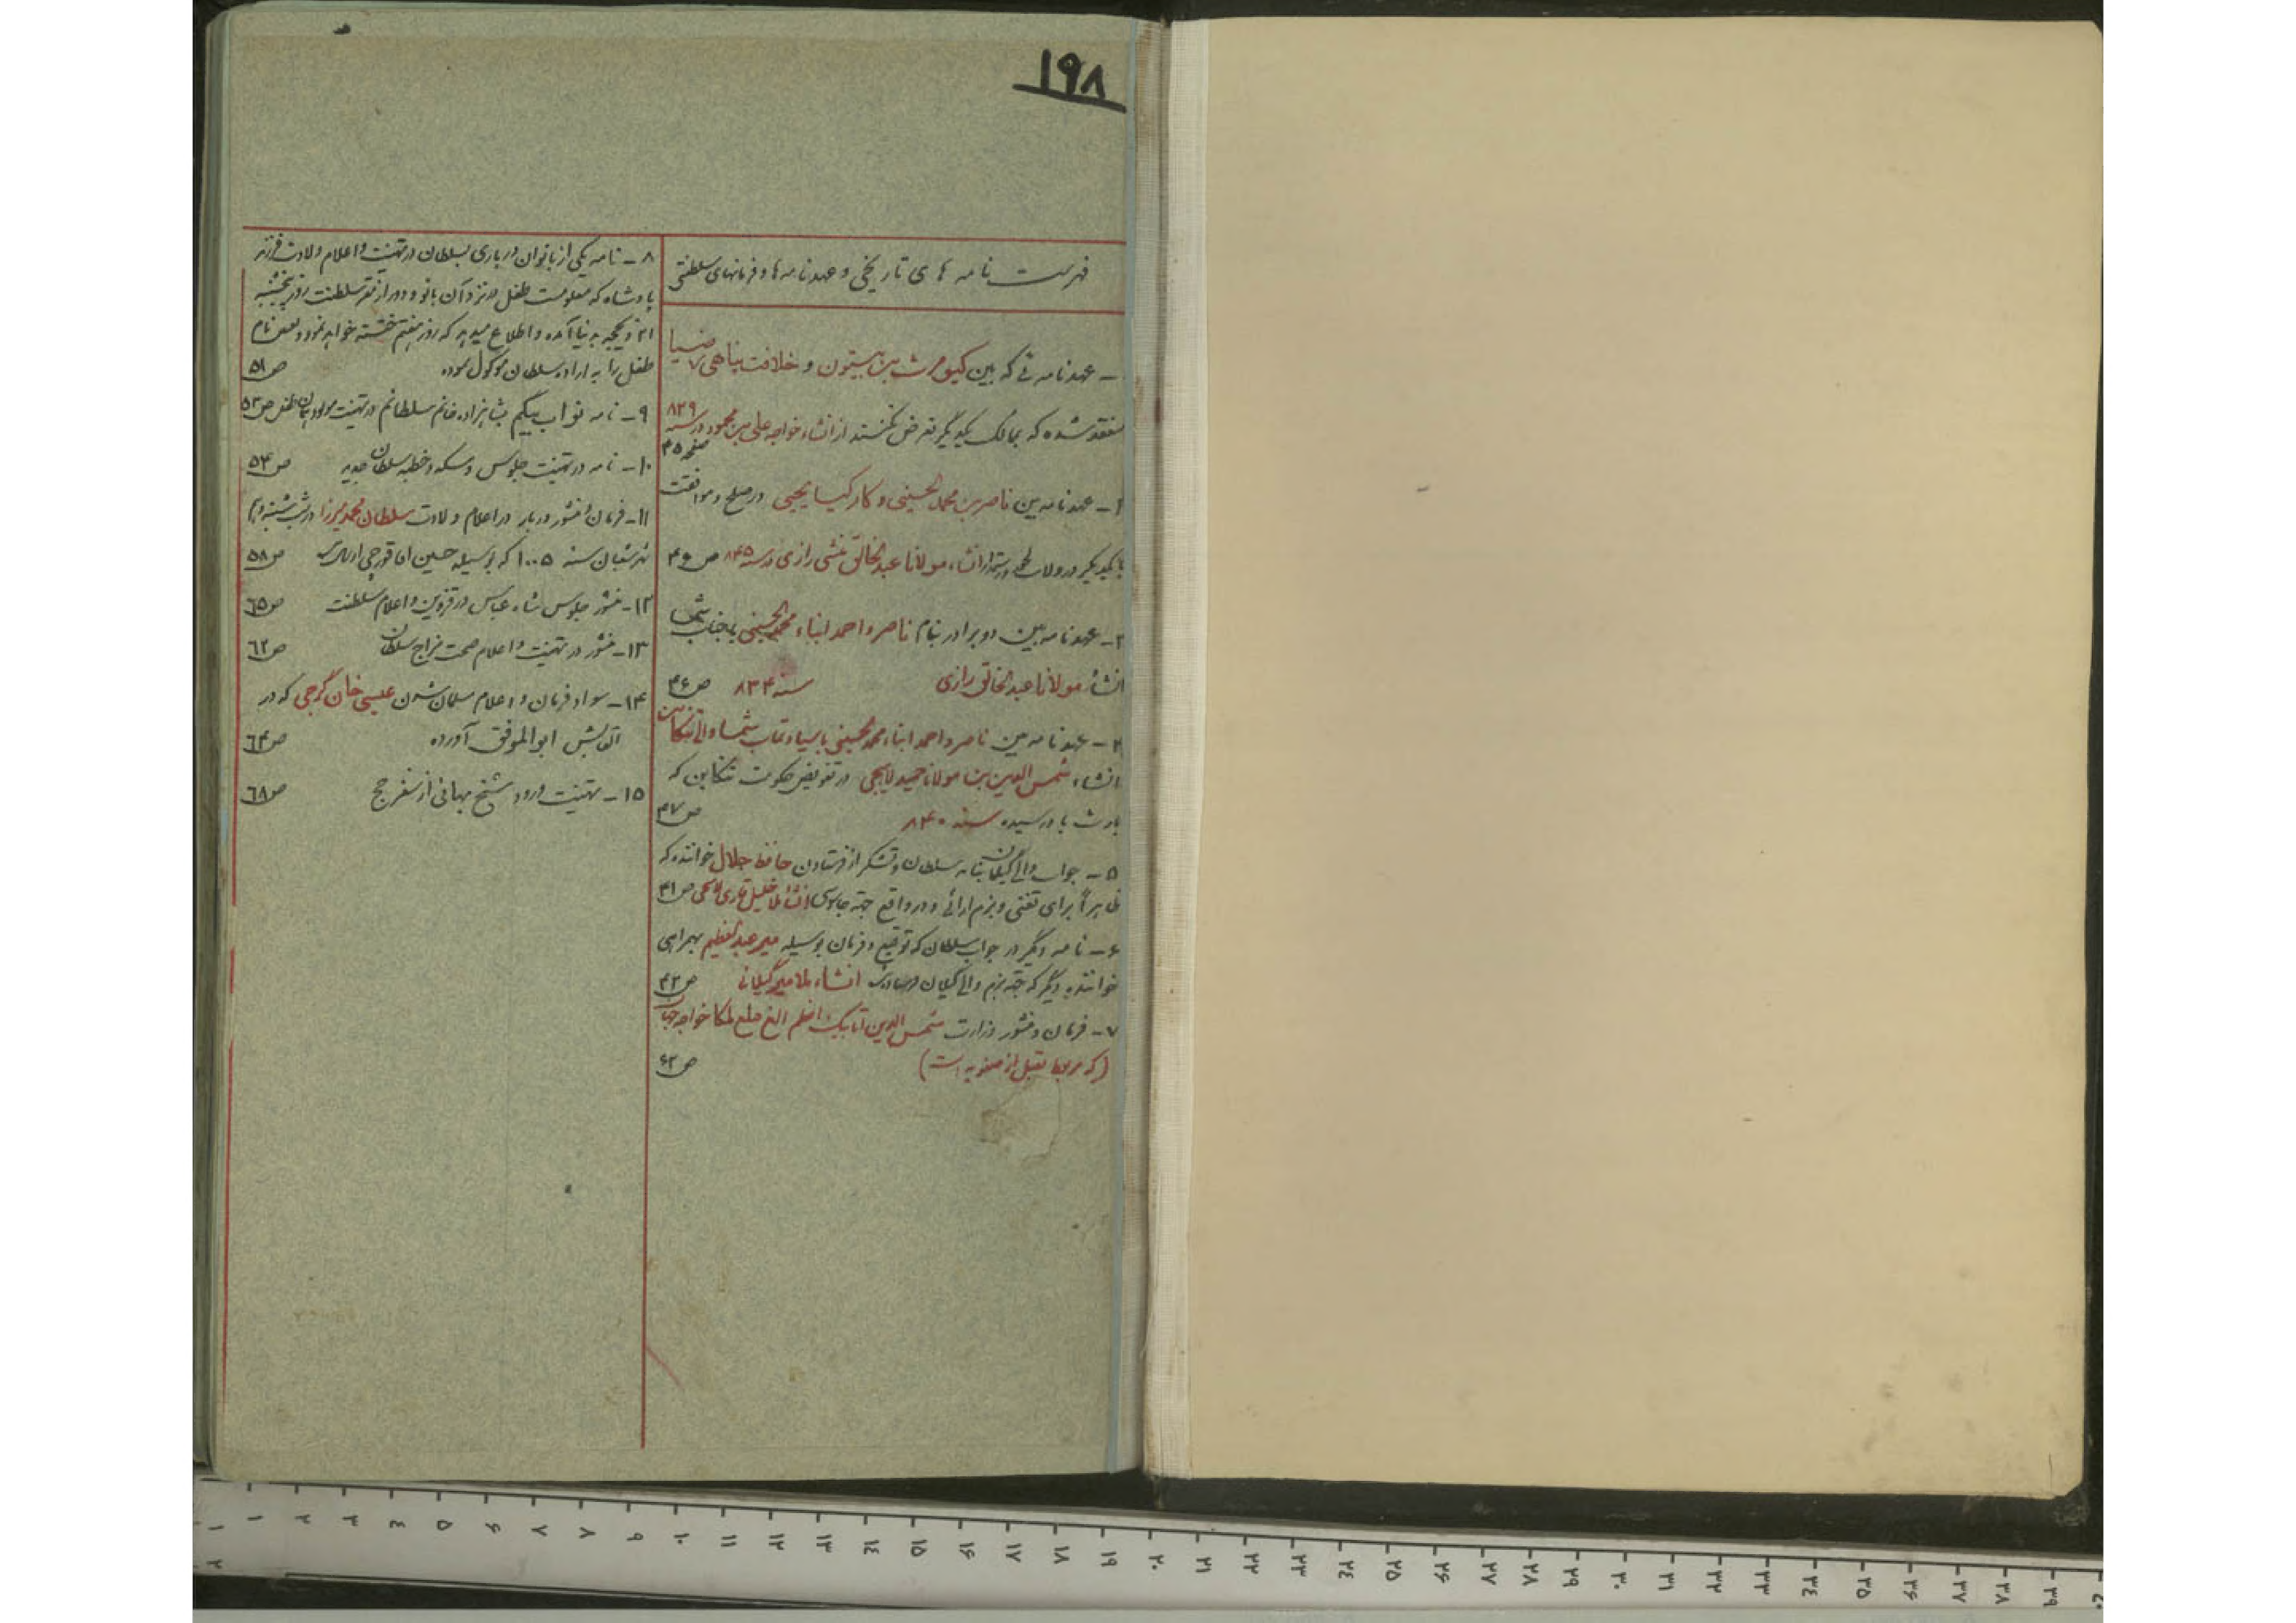 ۱۹۸
فهرست نامه های تاریخی و عهدنامه ها و فرمانهای سلطنتی
– عهدنامه ئی که بین کیومرث بن بیستون و خلافت پناهی
منعقد شده که بممالک یکدیگر تعرض نکنند از انشاء خواجه علی بن محمود در سنه ۸۲۹
صفحه ۴۵
۲– عهدنامه بین ناصر بن محمد الحسینی و کارکیا یحیی در صلح و موافقت
با یکدیگر در ولات انشاء مولانا عبدالخالق منشی رازی در سنه ۸۴۵ ص ۴۶
۳– عهدنامه بین دو برادر بنام ناصر و احمد ابناء محمد الحسینی
انشاء مولانا عبدالخالق رازی سنه ۸۳۴ ص ۴۶
۴– عهدنامه بین ناصر و احمد ابناء محمد حسینی با والی تنکابن
انشاء شمس الدین بن مولانا حمید لاهیجی در تفویض حکومت تنکابن که
بارث باو رسیده سنه ۸۴۰ ص ۴۷
۵– جواب والی گیلان بنامه سلطان و تشکر از فرستادن حافظ جلال خواننده که
ظاهراً برای تغنی و بزم ارائی و در واقع جهة جاسوسی انشاء ملا خلیل قاری ص ۴۱
۶– نامه دیگر در جواب سلطان که توقیع و فرمان بوسیله میر عبدالعظیم بهمراهی
خواننده دیگر که جهة بزم والی گیلان فرستاده انشاء ملا میر گیلانی ص ۴۲
۷– فرمان و منشور وزارت شمس الدین اتابیک اعظم الغ خواجه
(که مربوط بقبل از صفویه است) ص ۶۲
۸– نامه یکی از بانوان درباری بسلطان در تهنیت و اعلام ولادت فرزند
پادشاه که معلومست طفل در نزد آن بانو و دور از مقر سلطنت روز پنجشنبه
۲۱ ذیحجه بدنیا آمده و اطلاع میدهد که روز هفتم ختنه خواهد نمود و تعیین نام
طفل را به اراده سلطان موکول نموده ص ۵۱
۹– نامه نواب بیگم شاهزاده خانم سلطانم در تهنیت مولود همان طفل ص ۵۳
۱۰– نامه در تهنیت جلوس و سکه و خطبه سلطان جدید ص ۵۴
۱۱– فرمان و منشور دربار در اعلام ولادت سلطان محمد میرزا در شب شنبه
شهر شعبان سنه ۱۰۰۵ که بوسیله حسین اقا قورچی ص ۵۸
۱۲– منشور جلوس شاه عباس در قزوین و اعلام سلطنت ص ٦۵
۱۳– منشور در تهنیت و اعلام صحت مزاج سلطان ص ٦۲
۱۴– سواد فرمان و اعلام مسلمان شدن عیسی خان گرجی که در
القابش ابوالموفق آورده ص ٦۴
۱۵– تهنیت ورود شیخ بهائی از سفر حج ص ٦۸
۱ ۲ ۳ ٤ ۵ ۶ ۷ ۸ ۹ ۱۰ ۱۱ ۱۲ ۱۳ ۱٤ ۱۵ ۱۶ ۱۷ ۱۸ ۱۹ ۲۰ ۲۱ ۲۲ ۲۳ ۲٤ ۲۵ ۲۶ ۲۷ ۲۸ ۲۹ ۳۰ ۳۱ ۳۲ ۳۳ ۳٤ ۳۵ ۳۶ ۳۷ ۳۸ ۳۹